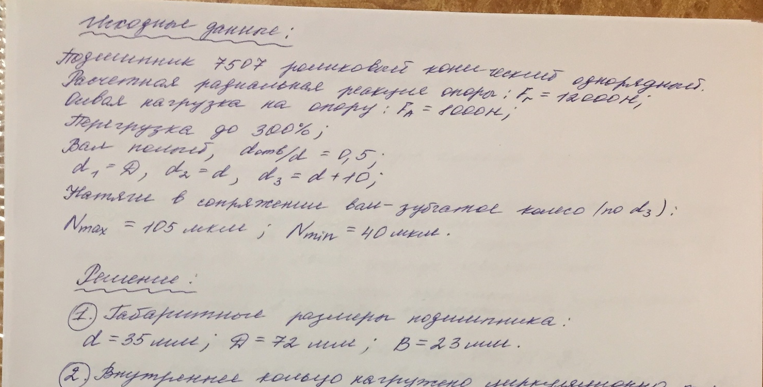 Исходные данные:
Подшипник 7507 роликовый конический однорядный.
Расчетная радиальная реакция опоры: Fr = 12000Н;
Осевая нагрузка на опору: FA = 1000Н;
Перегрузка до 300%;
Вал полый, dотв/d = 0,5;
d1 = D, d2 = d, d3 = d + 10;
Натяги в сопряжении вал-зубчатое колесо (по d3):
Nmax = 105 мкм; Nmin = 40 мкм.
Решение:
1. Габаритные размеры подшипника:
d = 35 мм; D = 72 мм; B = 23 мм.
2. Внутреннее кольцо нагружено циркуляционно